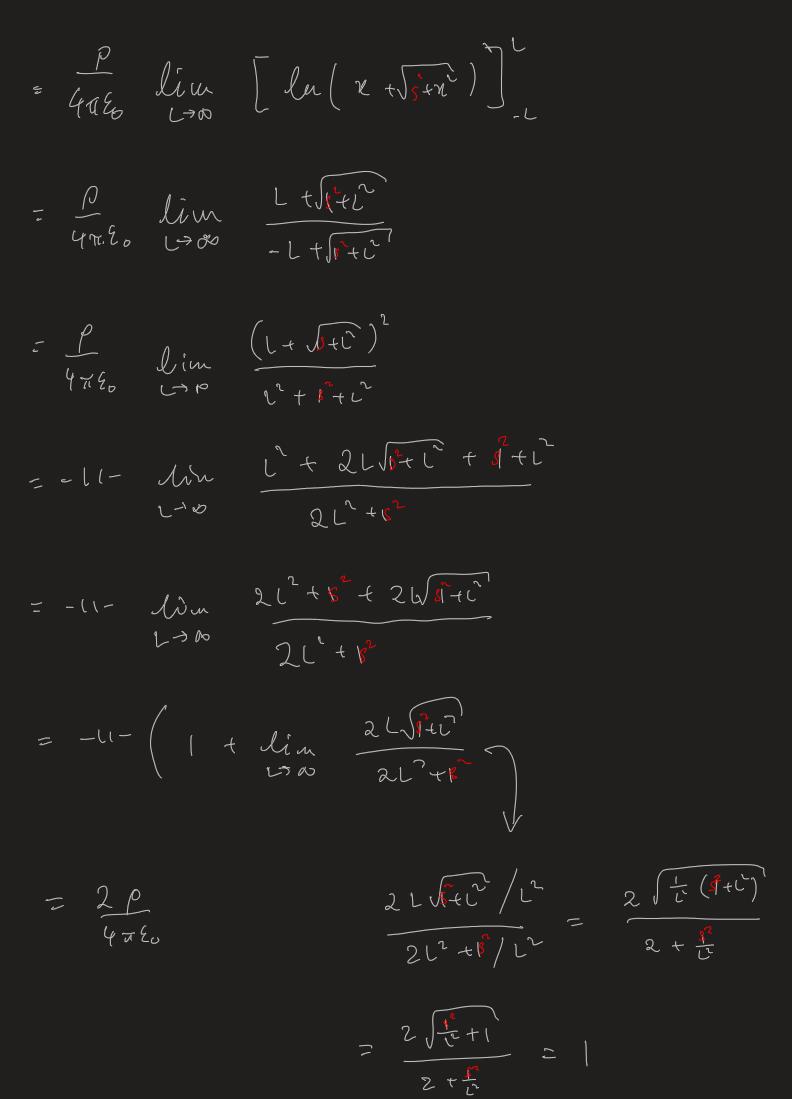 = ρ/(4πε₀) lim_{L→∞} [ ln( x + √(s² + x²) ) ]_{-L}^{L}
= ρ/(4πε₀) lim_{L→∞} (L + √(s² + L²)) / (-L + √(s² + L²))
= ρ/(4πε₀) lim_{L→∞} (L + √(s + L²))² / (L² + s² + L²)
= -11- lim_{L→∞} (L² + 2L√(s² + L²) + s² + L²) / (2L² + s²)
= -11- lim_{L→∞} (2L² + s² + 2L√(s² + L²)) / (2L² + s²)
= -11- ( 1 + lim_{L→∞} (2L√(s² + L²)) / (2L² + s²)
= 2ρ/(4πε₀) (2L√(s² + L²) / L²) / (2L² + s² / L²) = (2√(1/L² (s² + L²))) / (2 + s²/L²)
= (2√(s²/L² + 1)) / (2 + s²/L²) = 1